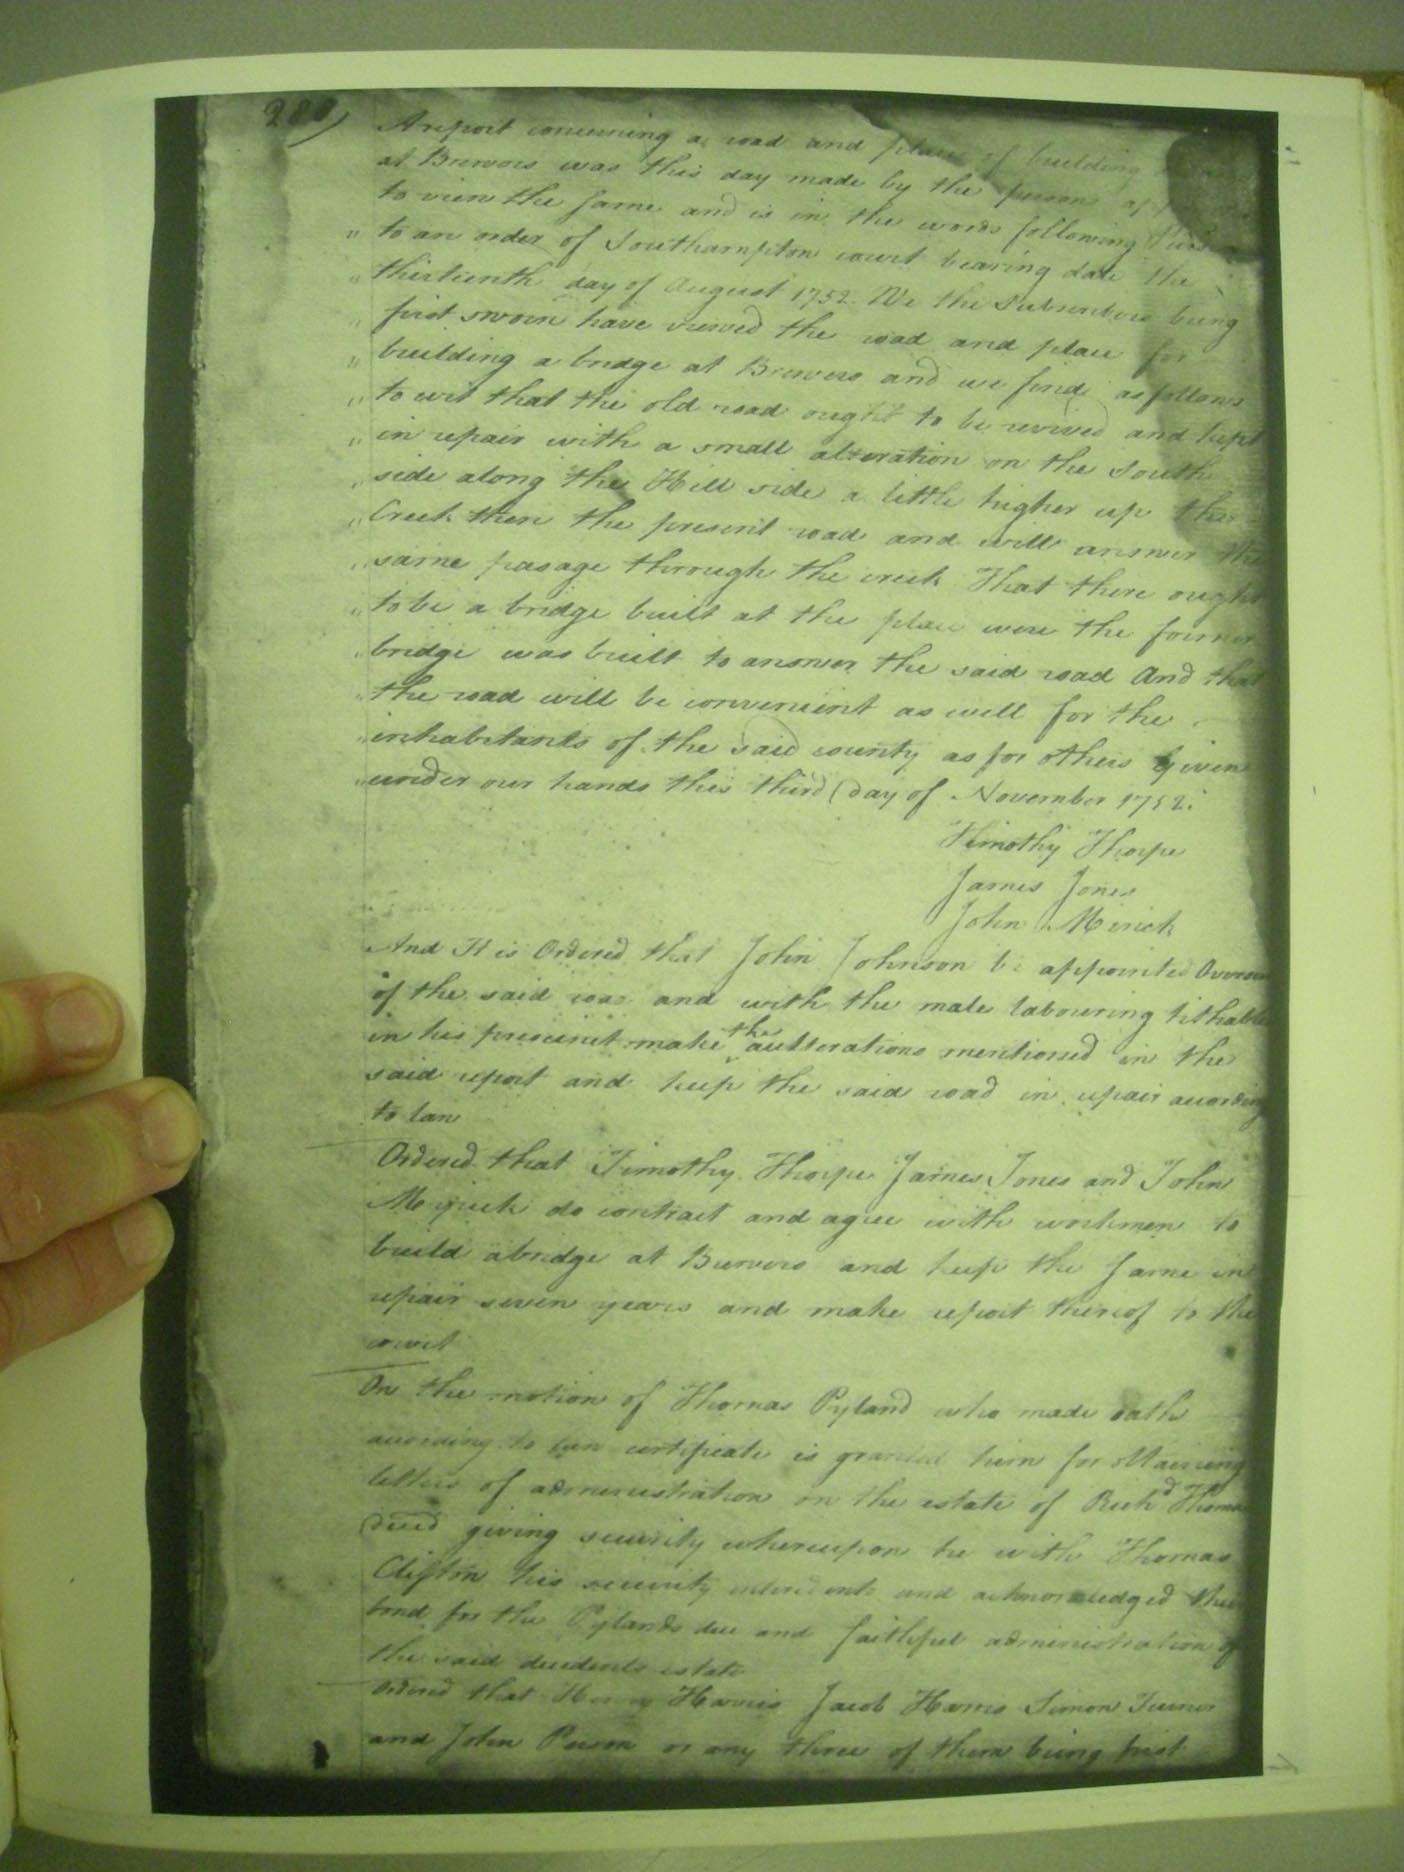 A report concerning a road and place of building
at Brewers was this day made by the persons
to view the same and is in the words following
" to an order of Southampton court bearing date the
" thirteenth day of August 1752. We the Subscribers being
" first sworn have viewed the road and place for
" building a bridge at Brewers and we find as follows
" to wit that the old road ought to be revived and kept
" in repair with a small alteration on the South
" side along the Hill side a little higher up the
" Creek then the present road and will answer the
" same pasage through the creek That there ought
" to be a bridge built at the place were the former
" bridge was built to answer the said road And that
" the road will be convenient as well for the
" inhabitants of the said county as for others Given
" under our hands this third day of November 1752.
Timothy Thorpe
James Jones
John Mirick
And It is Ordered that John Johnson be appointed
of the said road and with the male labouring tithables
in his precinct make the aulterations mentioned in the
said report and keep the said road in repair according
to law
Ordered that Timothy Thorpe James Jones and John
Myrick do contract and agree with workmen to
build a bridge at Brewers and keep the same in
repair seven years and make report thereof to the
court
On the motion of Thomas Pyland who made oath
according to law certificate is granted him for obtaining
letters of administration on the estate of Richd Thomas
deced giving security whereupon he with Thomas
Clifton his security entered into and acknowledged their
bond for the Pylands due and faithful administration of
the said decedents estate
Ordered that Henry Harris Jacob Harris Simon Turner
and John Person or any three of them being first